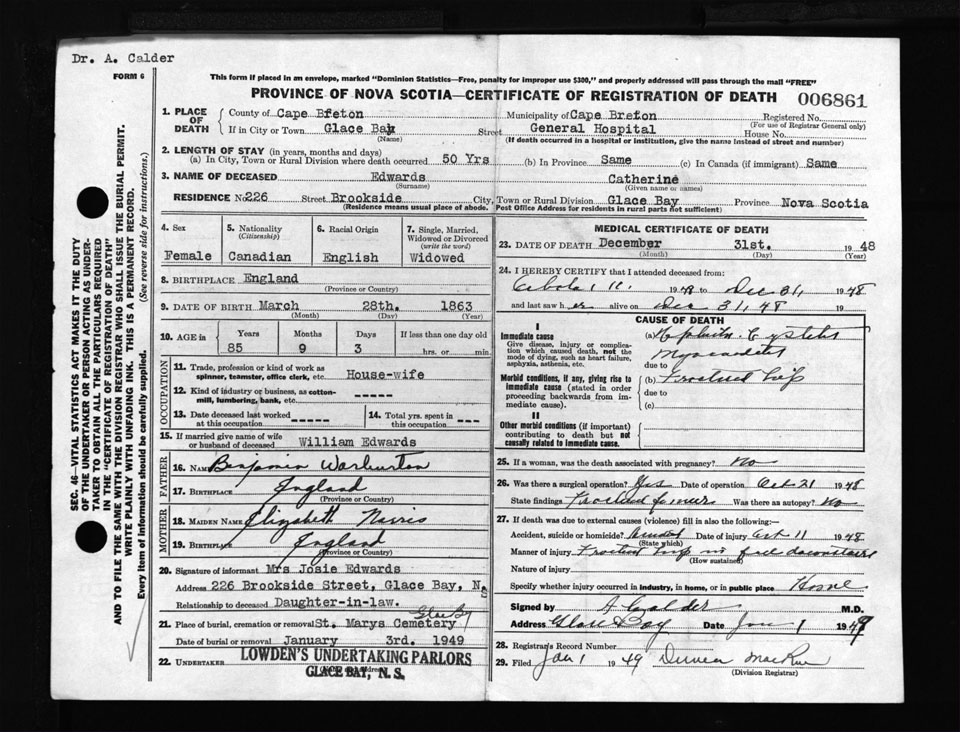 Dr. A. Calder
FORM 6
This form if placed in an envelope, marked "Dominion Statistics—Free, penalty for improper use $300," and properly addressed will pass through the mail "FREE"
PROVINCE OF NOVA SCOTIA—CERTIFICATE OF REGISTRATION OF DEATH 006861
SEC. 46—VITAL STATISTICS ACT MAKES IT THE DUTY
OF THE UNDERTAKER OR PERSON ACTING AS UNDER-
TAKER TO OBTAIN ALL THE PARTICULARS REQUIRED
IN THE "CERTIFICATE OF REGISTRATION OF DEATH"
AND TO FILE THE SAME WITH THE DIVISION REGISTRAR WHO SHALL ISSUE THE BURIAL PERMIT.
WRITE PLAINLY WITH UNFADING INK. THIS IS A PERMANENT RECORD.
Every item of information should be carefully supplied. (See reverse side for instructions.)
1. PLACE OF DEATH
County of Cape Breton Municipality of Cape Breton Registered No.
(For use of Registrar General only)
If in City or Town Glace Bay Street General Hospital House No.
(Name) (If death occurred in a hospital or institution, give the name instead of street and number)
2. LENGTH OF STAY (in years, months and days)
(a) In City, Town or Rural Division where death occurred 50 Yrs (b) In Province Same (c) In Canada (if immigrant) Same
3. NAME OF DECEASED Edwards Catherine
(Surname) (Given name or names)
RESIDENCE No 226 Street Brookside City, Town or Rural Division Glace Bay Province Nova Scotia
(Residence means usual place of abode. Post Office Address for residents in rural parts not sufficient)
4. Sex
Female
5. Nationality
(Citizenship)
Canadian
6. Racial Origin
English
7. Single, Married,
Widowed or Divorced
(write the word)
Widowed
8. BIRTHPLACE England
(Province or Country)
9. DATE OF BIRTH March 28th. 1863
(Month) (Day) (Year)
10. AGE in Years Months Days If less than one day old
85 9 3 hrs. or min.
OCCUPATION
11. Trade, profession or kind of work as
spinner, teamster, office clerk, etc. House-wife
12. Kind of industry or business, as cotton-
mill, lumbering, bank, etc. -----
13. Date deceased last worked
at this occupation -----
14. Total yrs. spent in
this occupation ---
15. If married give name of wife
or husband of deceased William Edwards
FATHER
16. Name Benjamin Warburton
17. Birthplace England
(Province or Country)
MOTHER
18. Maiden Name Elizabeth Norris
19. Birthplace England
(Province or Country)
20. Signature of informant Mrs Josie Edwards
Address 226 Brookside Street, Glace Bay, N.S
Relationship to deceased Daughter-in-law.
21. Place of burial, cremation or removal St. Marys Cemetery Glace Bay
Date of burial or removal January 3rd. 1949
22. UNDERTAKER LOWDEN'S UNDERTAKING PARLORS
GLACE BAY, N. S.
MEDICAL CERTIFICATE OF DEATH
23. DATE OF DEATH December 31st. 1948
(Month) (Day) (Year)
24. I HEREBY CERTIFY that I attended deceased from:
11 1948 to Dec 31, 1948
and last saw h er alive on Dec 31, 48
CAUSE OF DEATH
I
Immediate cause
Give disease, injury or complica-
tion which caused death, not the
mode of dying, such as heart failure,
asphyxia, asthenia, etc.
(a) Cystitis
Myocarditis
due to
Morbid conditions, if any, giving rise to
immediate cause (stated in order
proceeding backwards from im-
mediate cause).
(b) Fractured hip
due to
(c)
II
Other morbid conditions (if important)
contributing to death but not
causally related to immediate cause.
25. If a woman, was the death associated with pregnancy? No
26. Was there a surgical operation? Yes Date of operation Oct 21 1948
State findings Fractured femur Was there an autopsy? No
27. If death was due to external causes (violence) fill in also the following:—
Accident, suicide or homicide? Accident Date of injury Oct 11 1948
(State which)
Manner of injury Fractured hip downstairs
(How sustained)
Nature of injury
Specify whether injury occurred in industry, in home, or in public place Home
Signed by A Calder M.D.
Address Glace Bay Date Jan 1 1949
28. Registrar's Record Number
29. Filed Jan 1 1949 Duncan MacRae
(Division Registrar)